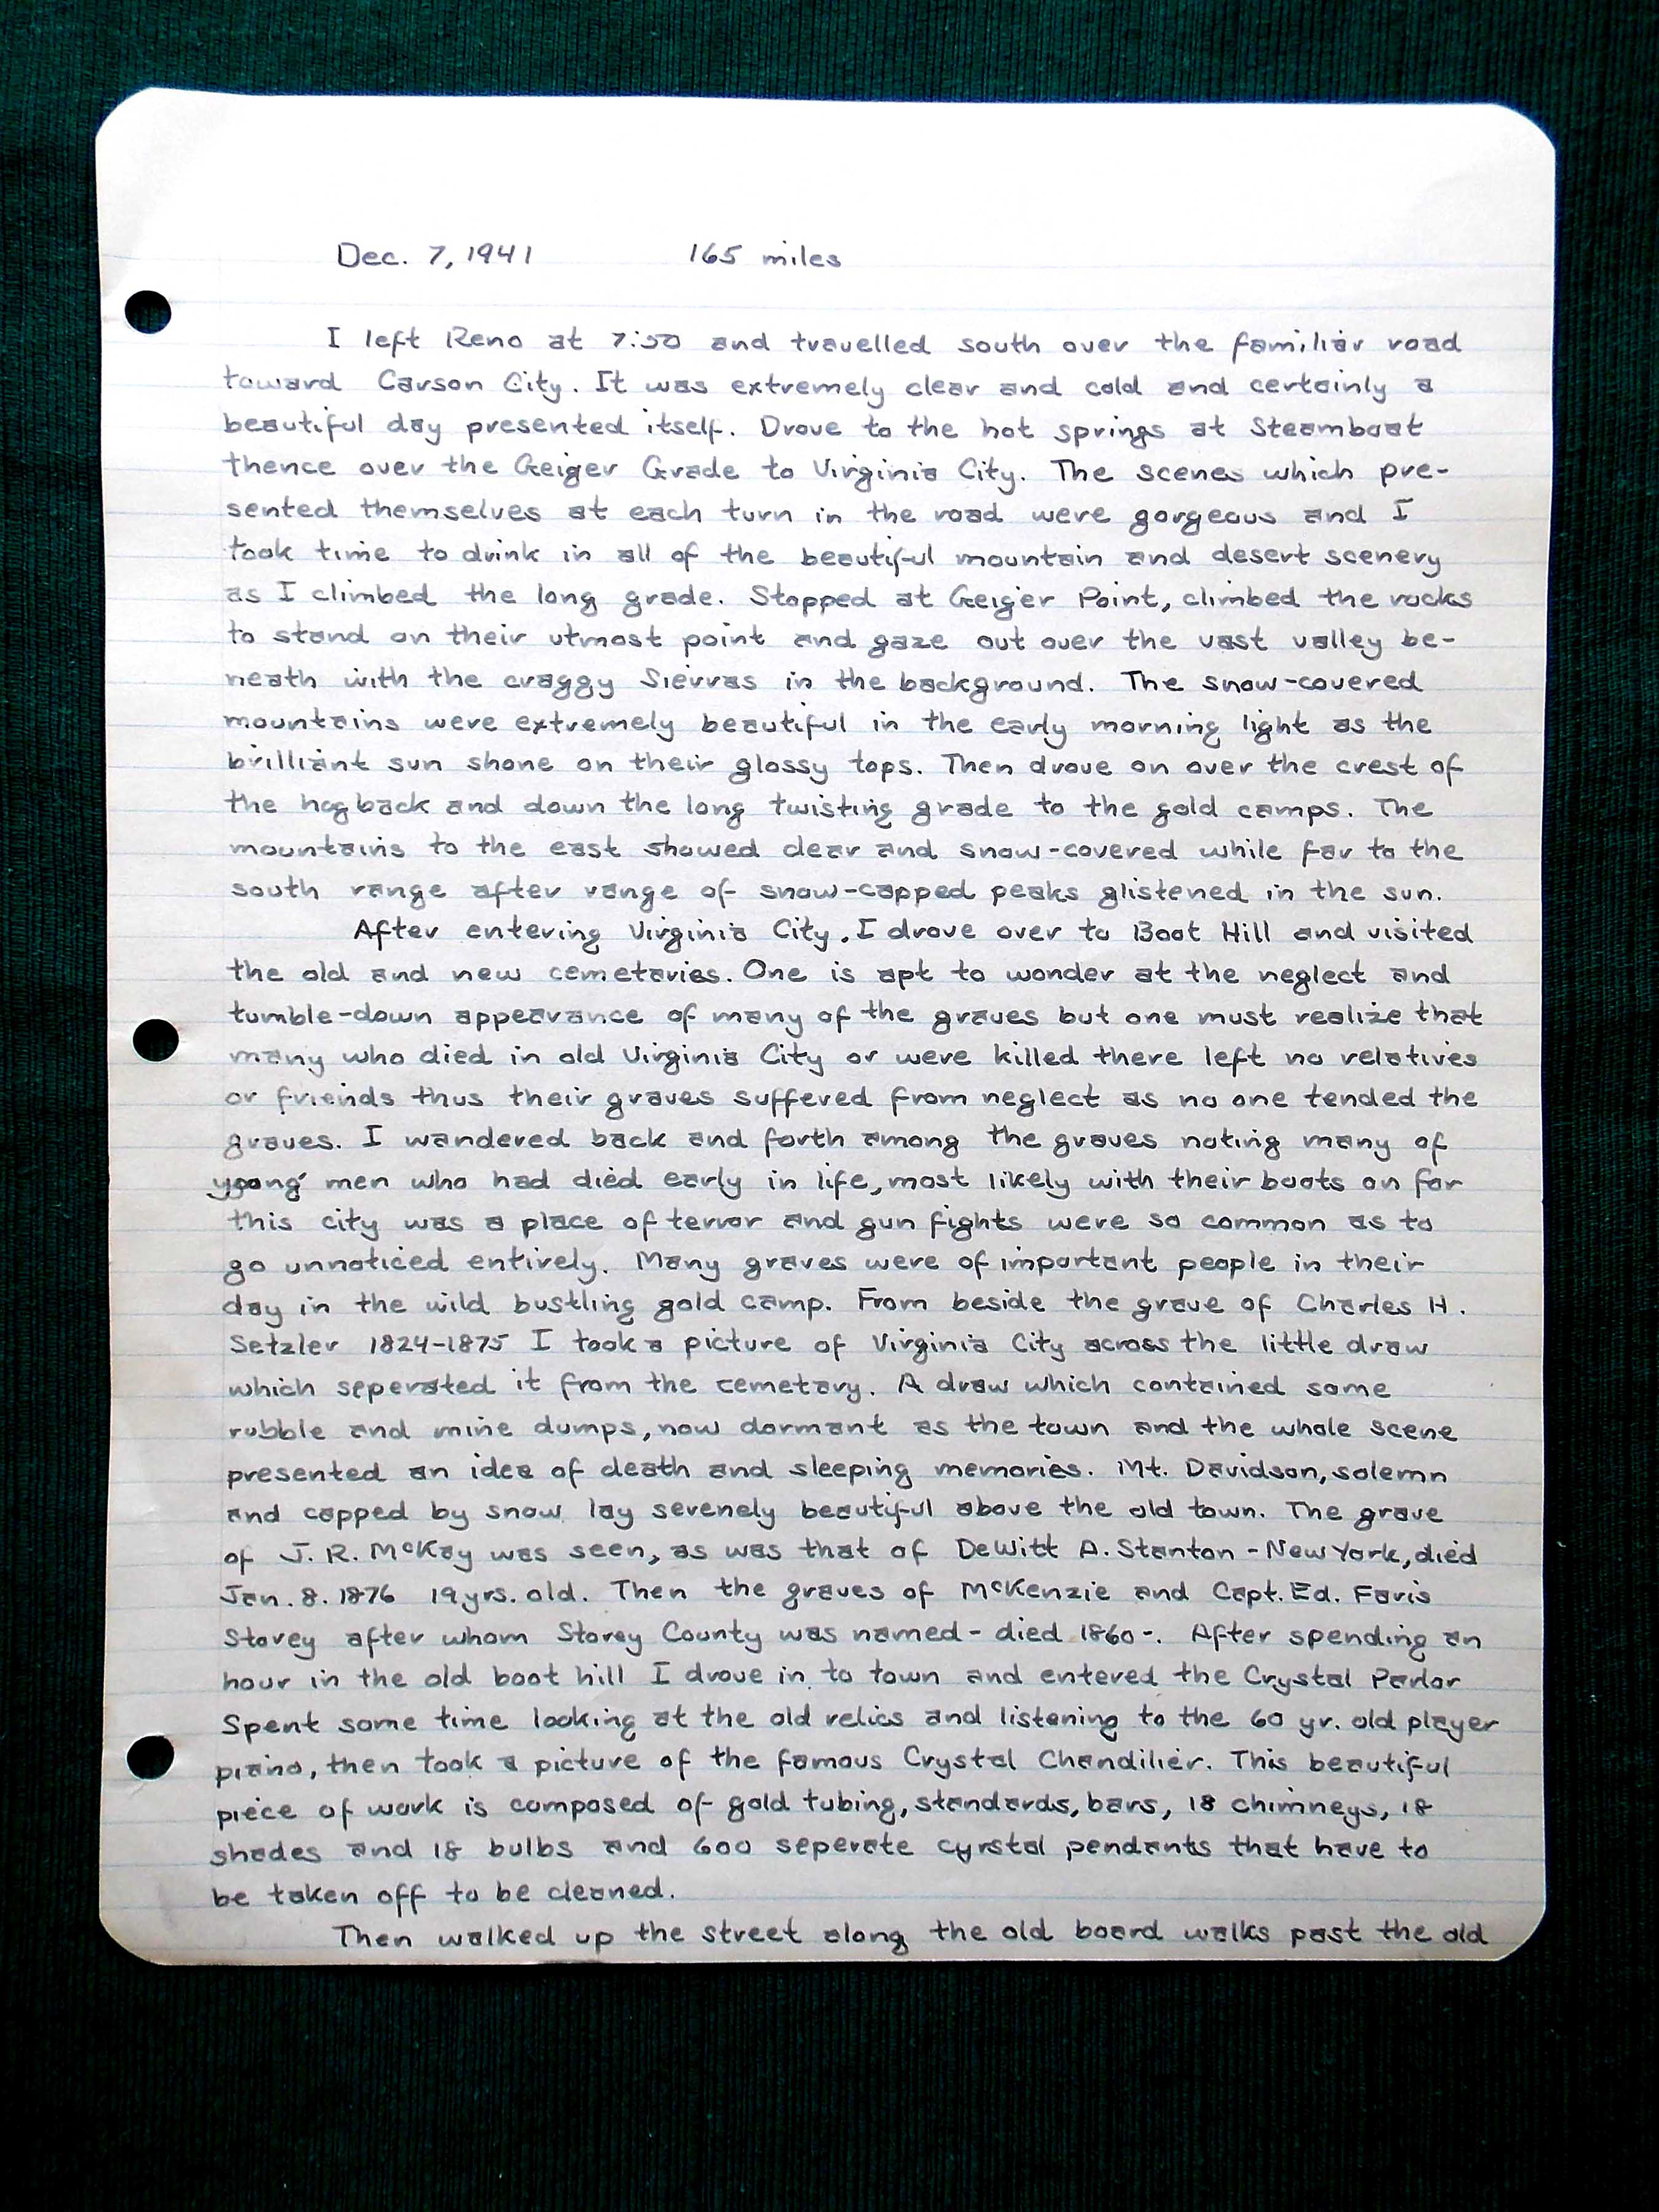 Dec. 7, 1941 165 miles
I left Reno at 7:50 and travelled south over the familiar road
toward Carson City. It was extremely clear and cold and certainly a
beautiful day presented itself. Drove to the hot springs at Steamboat
thence over the Geiger Grade to Virginia City. The scenes which pre-
sented themselves at each turn in the road were gorgeous and I
took time to drink in all of the beautiful mountain and desert scenery
as I climbed the long grade. Stopped at Geiger Point, climbed the rocks
to stand on their utmost point and gaze out over the vast valley be-
neath with the craggy Sierras in the background. The snow-covered
mountains were extremely beautiful in the early morning light as the
brilliant sun shone on their glossy tops. Then drove on over the crest of
the hogback and down the long twisting grade to the gold camps. The
mountains to the east showed clear and snow-covered while far to the
south range after range of snow-capped peaks glistened in the sun.
After entering Virginia City, I drove over to Boot Hill and visited
the old and new cemetaries. One is apt to wonder at the neglect and
tumble-down appearance of many of the graves but one must realize that
many who died in old Virginia City or were killed there left no relatives
or friends thus their graves suffered from neglect as no one tended the
graves. I wandered back and forth among the graves noting many of
young men who had died early in life, most likely with their boots on for
this city was a place of terror and gun fights were so common as to
go unnoticed entirely. Many graves were of important people in their
day in the wild bustling gold camp. From beside the grave of Charles H.
Setzler 1824-1875 I took a picture of Virginia City across the little draw
which seperated it from the cemetary. A draw which contained some
rubble and mine dumps, now dormant as the town and the whole scene
presented an idea of death and sleeping memories. Mt. Davidson, solemn
and capped by snow lay serenely beautiful above the old town. The grave
of J. R. McKay was seen, as was that of DeWitt A. Stanton - New York, died
Jan. 8. 1876 19 yrs. old. Then the graves of McKenzie and Capt. Ed. Faris
Storey after whom Storey County was named - died 1860 -. After spending an
hour in the old boot hill I drove in to town and entered the Crystal Parlor
Spent some time looking at the old relics and listening to the 60 yr. old player
piano, then took a picture of the famous Crystal Chandilier. This beautiful
piece of work is composed of gold tubing, standards, bars, 18 chimneys, 18
shades and 18 bulbs and 600 seperate cyrstal pendants that have to
be taken off to be cleaned.
Then walked up the street along the old board walks past the old